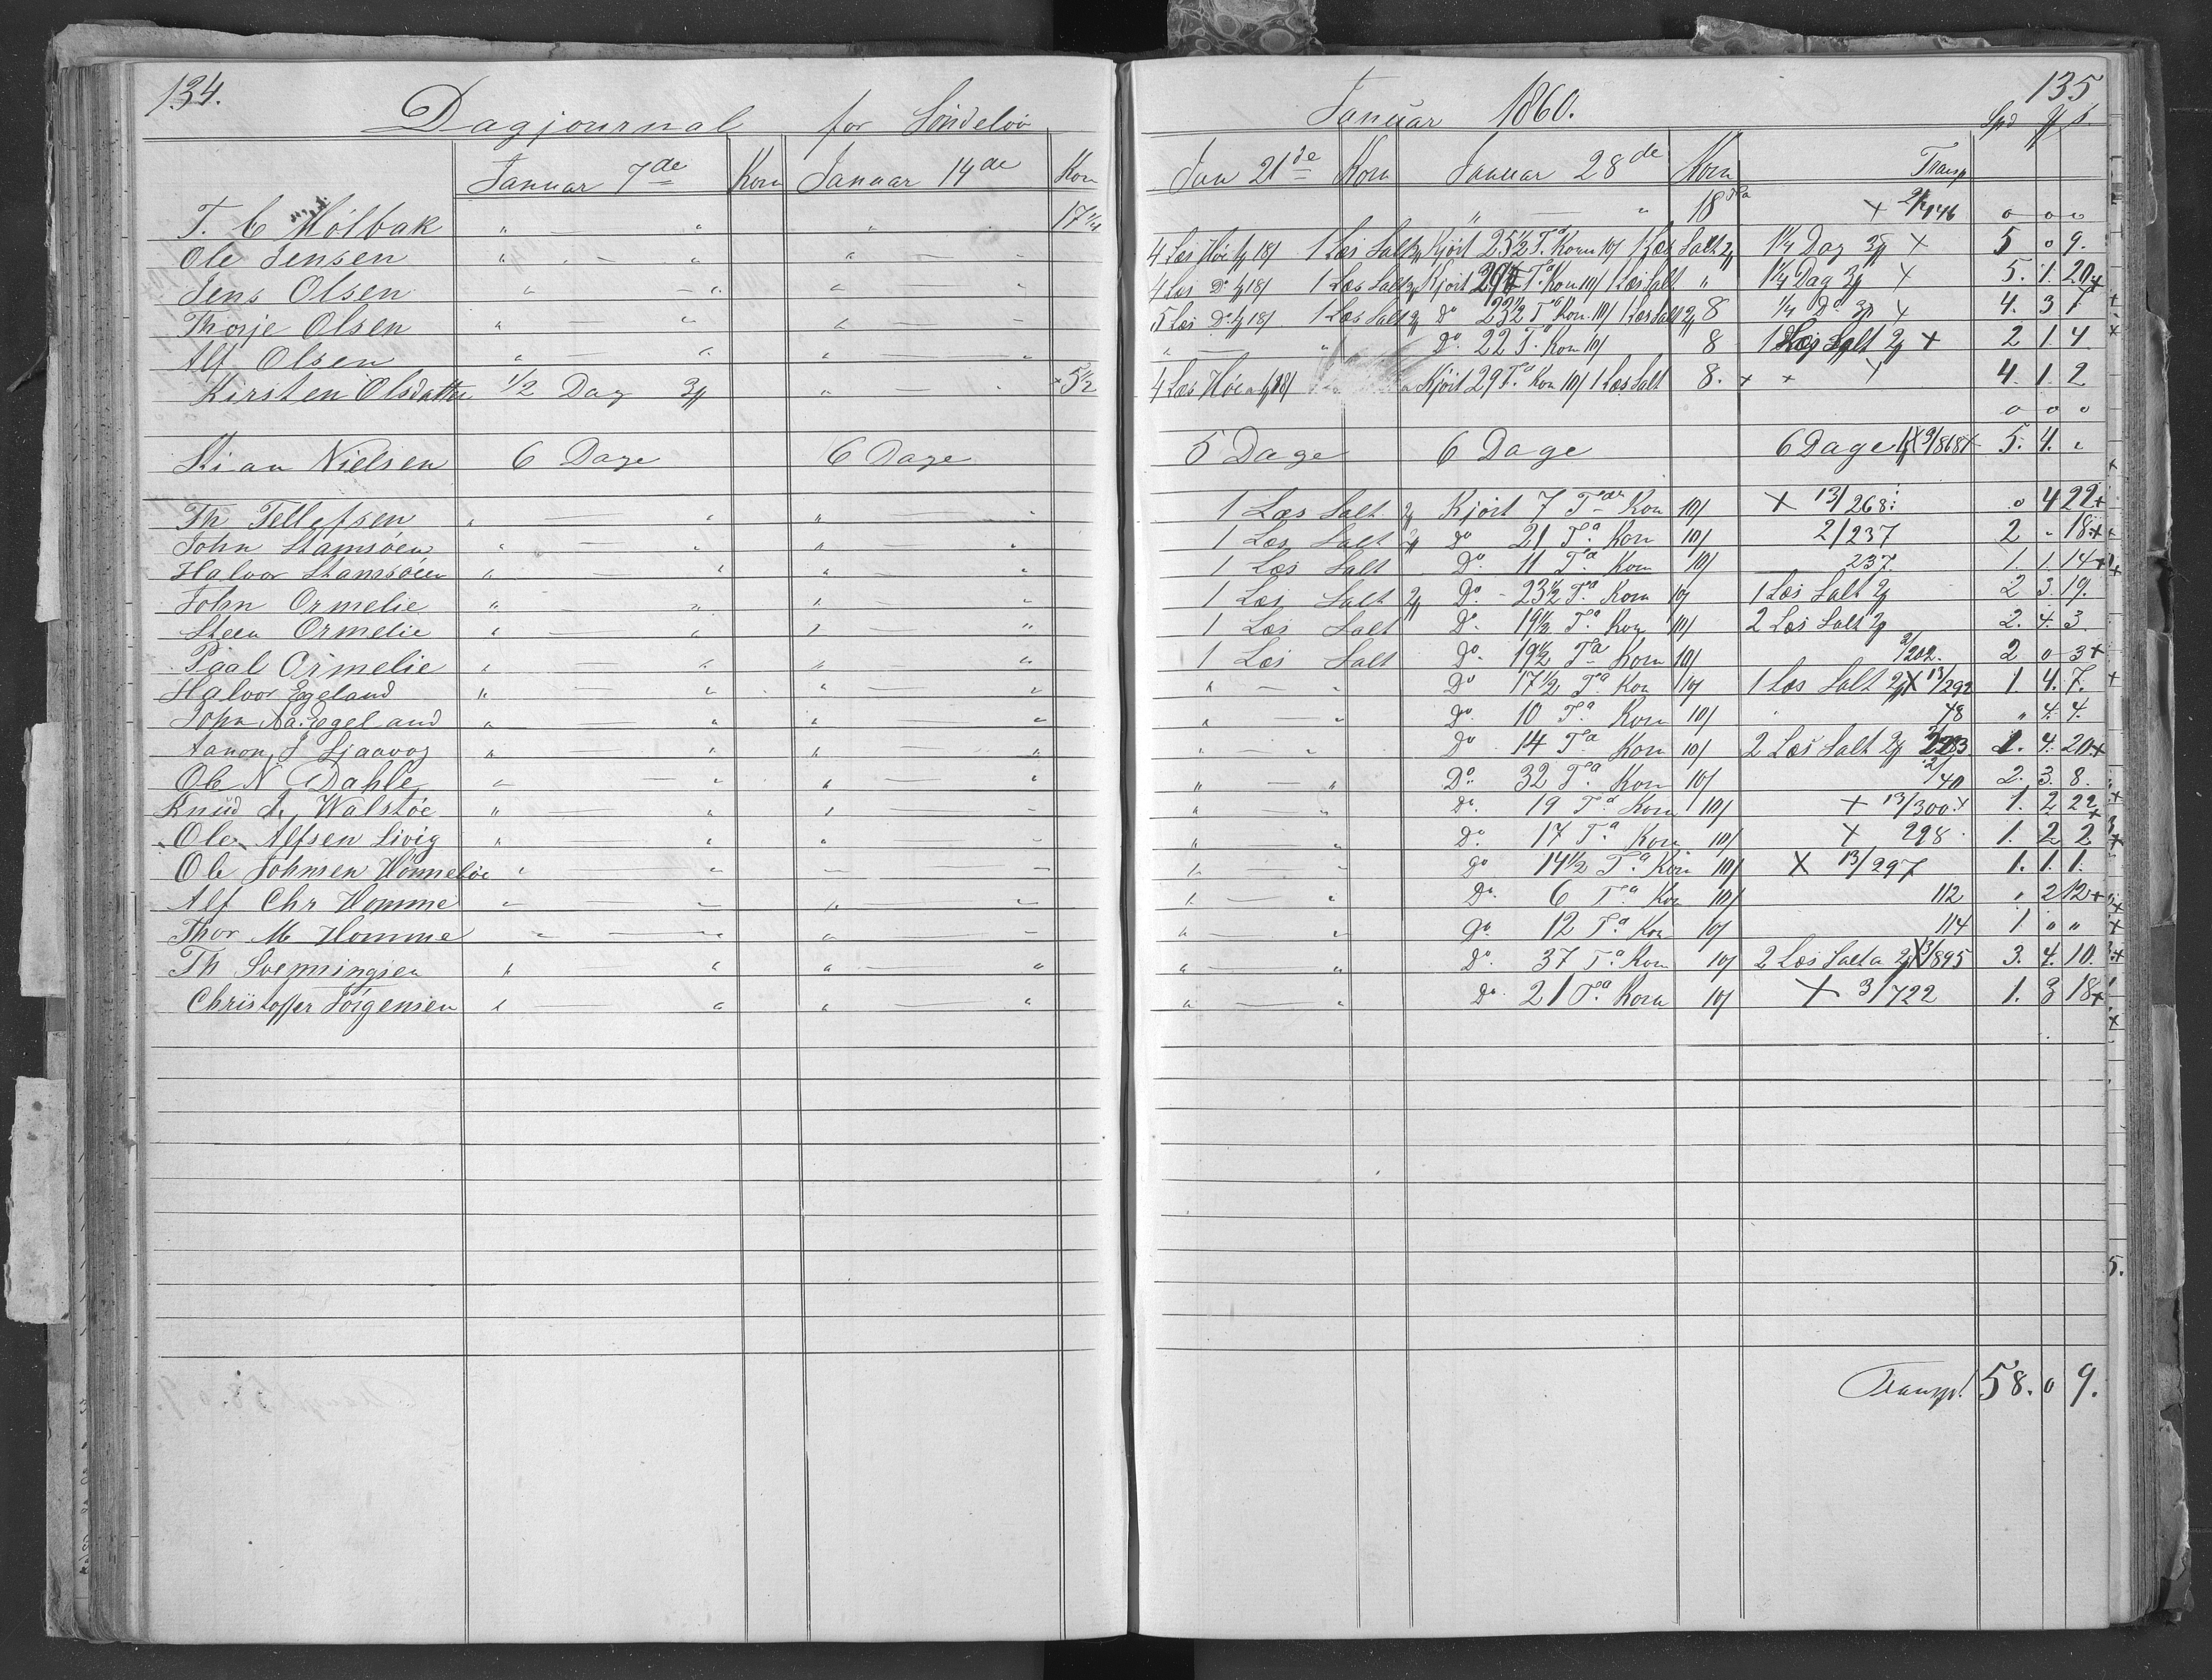 134.
Dagjournal for Söndeløv
Januar 7de Korn Januar 14de Korn
T. C Holbak " — " " — " 17 1/4
Ole Jensen " — " " — "
Jens Olsen " — " " — "
Thorje Olsen " — " " — "
Alf Olsen " — " " — "
Kirsten Olsdatter 1/2 Dag " — " 5 1/2
Kian Nielsen 6 Dage 6 Dage
Th Tellefsen " — " " — "
John Stamsöen " — " " — "
Halvor Stamsöen " — " " — "
John Ormelie " — " " — "
Steen Ormelie " — " " — "
Paal Ormelie " — " " — "
Halvor Egeland " — " " — "
John Aa. Egeland " — " " — "
Aanon J Ljaavog " — " " — "
Ole N Dahle " — " " — "
Knud A, Walstöe " — " " — "
Ole Alfsen Livig " — " " — "
Ole Johnsen Hommeløv " — " " — "
Alf Chr Homme " — " " — "
Thor M Homme " — " " — "
Th Svenningsen " — " " — "
Christoffer Jörgensen " — " " — "
Januar 1860. 135
Spd
Jan 21de Korn Januar 28de Korn Transp
" — " 18 Ta + 2/146 o o o
4 Læs Höe 18/ 1 Læs Salt Kjört 25 1/2 Ta Korn 10/ 1 Læs Salt 1 1/4 Dag + 5 o 9.
4 Læs Do 18/ 1 Læs Salt Kjört Ta Korn 10/ 1 Læs Salt " 1 1/4 Dag + 5. 1. 20+
5 Læs Do 18/ 1 Læs Salt Do 23 1/2 Ta Korn 10/ 1 Læs Salt 8 1/4 Do + 4. 3 1
" — " Do. 22 T. Korn 10/ 8 1 Læs Salt + 2 1 4
4 Læs Höe 18/ Kjört 29 Ta. Korn 10/ 1 Læs Salt 8. + + + 4. 1. 2
o o o
5 Dage 6 Dage 6 Dage 5. 4. "
1 Læs Salt Kjört 7 Tdr Korn 10/ + 13/268. o 4 22+
1 Læs Salt do 21 Ta. Korn 10/ 2/237 2 " 18+
1 Læs Salt Do. 11 Ta Korn 10/ 237. 1. 1. 14+
1 Læs Salt Do. 23 1/2 Ta Korn 10/ 1 Læs Salt 2 3. 19.
1 Læs Salt Do. 19 1/2 Ta. Korn 10/ 2 Læs Salt 2. 4. 3.
1 Læs Salt Do. 19 1/2 Ta Korn 10/ 2/202. 2 o 3+
" — " Do 17 1/2 Ta. Korn 10/ 1 Læs Salt + 13/292 1. 4. 7.
" — " Do. 10 Ta. Korn 10/ 48 " 4. 4.
" — " Do 14 Ta Korn 10/ 2 Læs Salt 1. 4. 20.+
" — " Do. 32 Ta. Korn 10/ 2/40 2. 3. 8.
" — " Do. 19 Ta Korn 10/ + 13/300.+ 1. 2 22+
" — " Do. 17 Ta. Korn 10/ + 298. 1. 2 2.
" — " Do 14 1/2 Ta. Korn 10/ + 13/297 1. 1. 1.
" — " Do. 6 Ta Korn 10/ 112 " 2 12+
" — " Do. 12 Ta Korn 10/ 114 1 " "
" — " Do. 37 Ta. Korn 10/ 2 Læs Salta + 3/895 3. 4. 10.
" — " Do. 21 Ta. Korn 10/ + 3/722 1. 3 18+
Transpt 58. o 9.